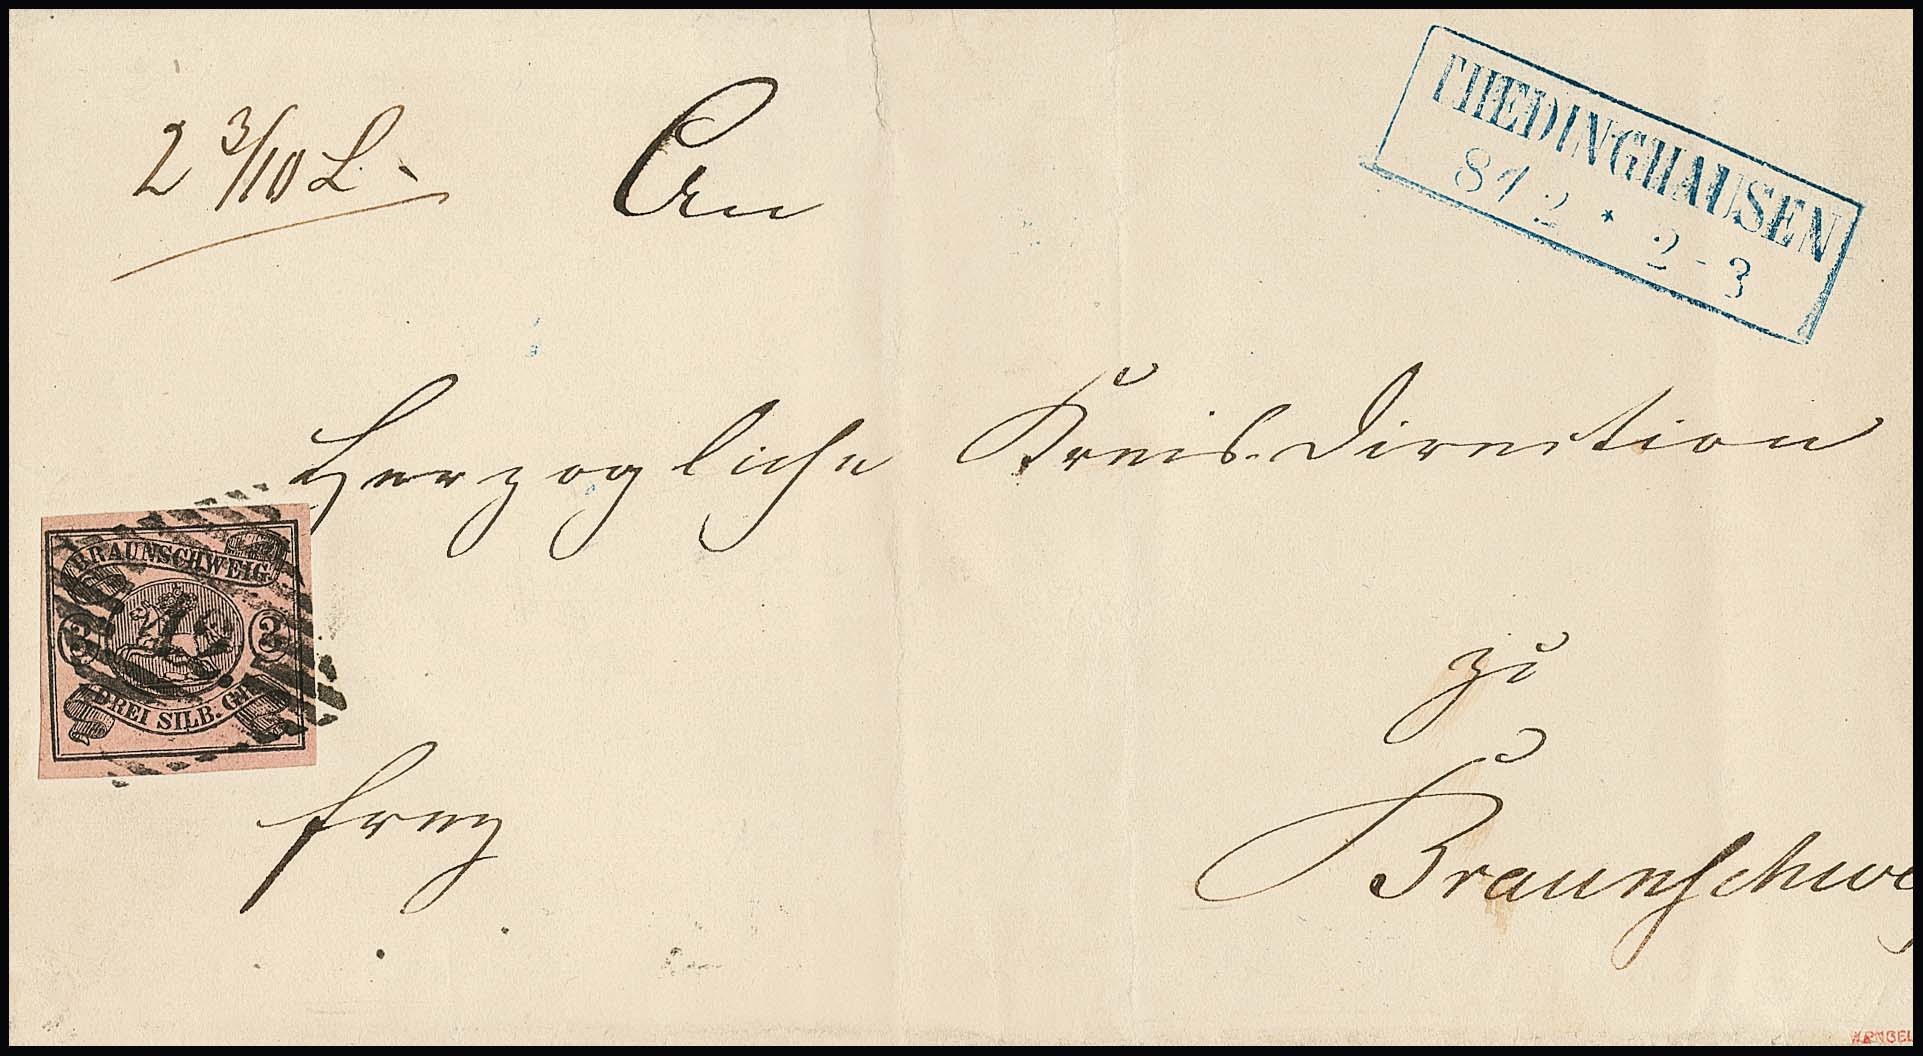 2 3/10 L.
An
THEDINGHAUSEN
8 12 * 2-3
Herzogliche Kreis-Direction
BRAUNSCHWEIG
3 3
DREI SILB. GR.
zu
frey
Braunschwei